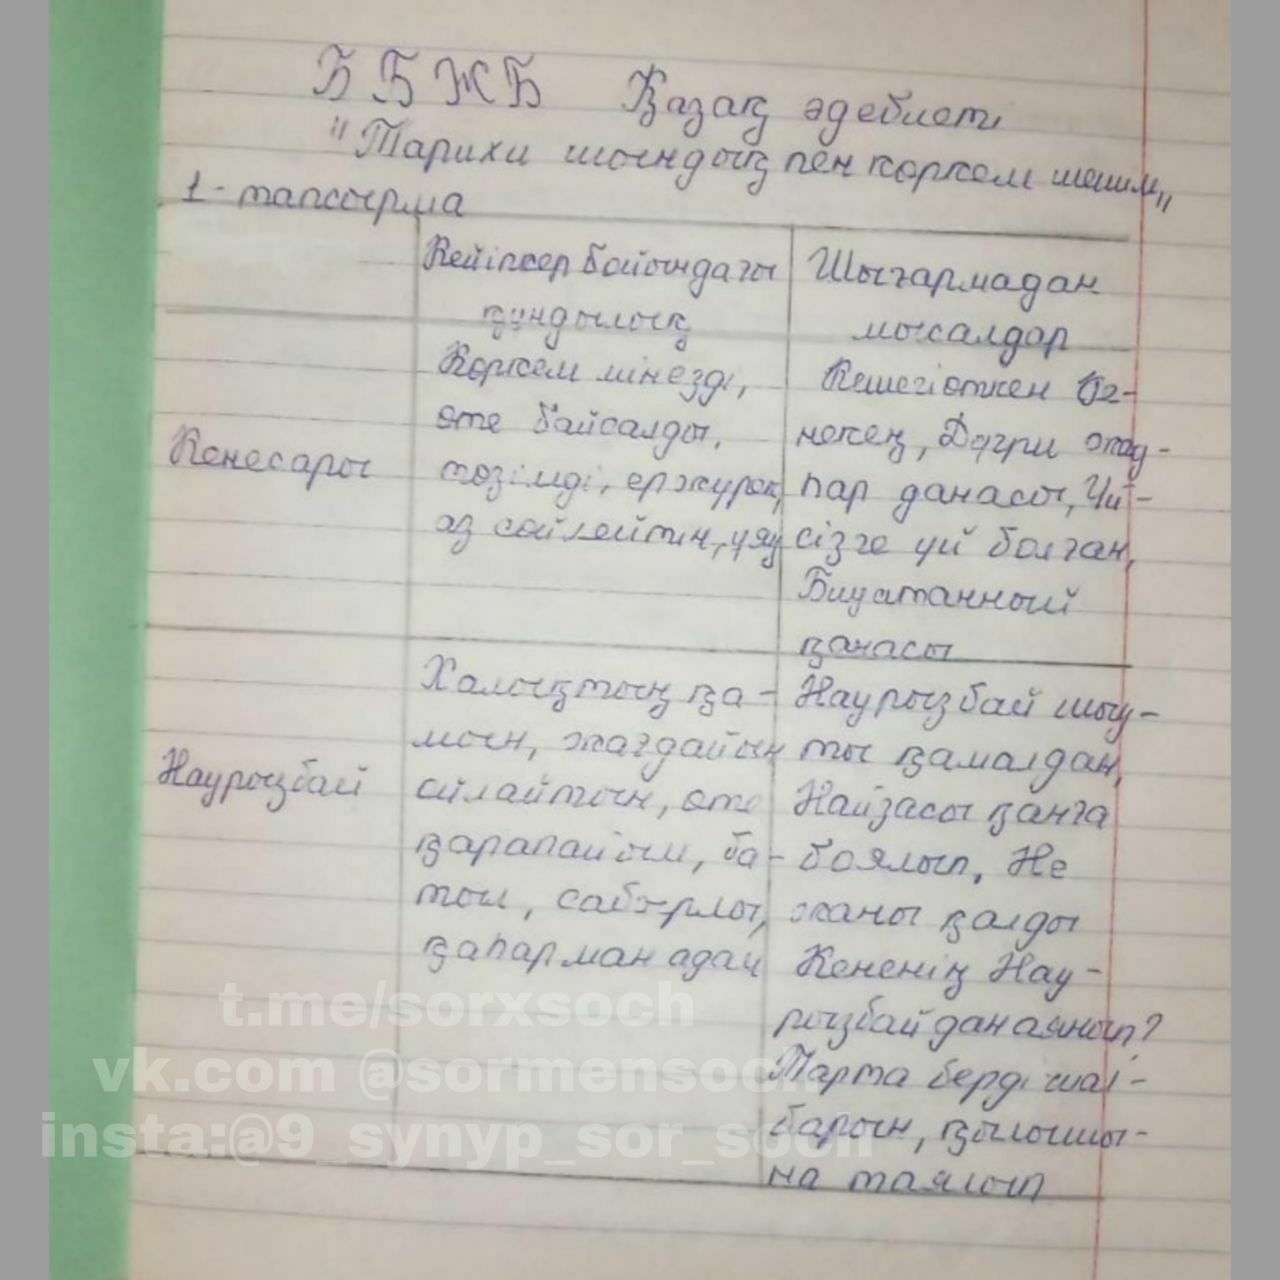 ББЖБ Қазақ әдебиеті
"Тарихи шындық пен көркем шешім"
1-тапсырма
Кейіпкер бойындағы
құндылық
Шығармадан
мысалдар
Кенесары
Көркем мінезді,
өте байсалды,
төзімді, ержүрек,
аз сөйлейтін, ұяң
Кешегі өткен
некең, жау-
пар данасы, Үй-
сізге үй болған,
панасы
Наурызбай
Халықтың қа-
мын, жағдайын
ойлайтын, өте
қарапайым, ба-
тыл, сабырлы,
қаһарман адам
Наурызбай шығ-
ты қамалдан,
Найзасы қанға
боялып, Не
жаны қалды
Кененің Нау-
рызбайдан аянып?
Тарта берді шаі-
барын, қылышы-
на таялып
t.me/sorxsoch
vk.com @sormensoch
insta:@9_synyp_sor_soch